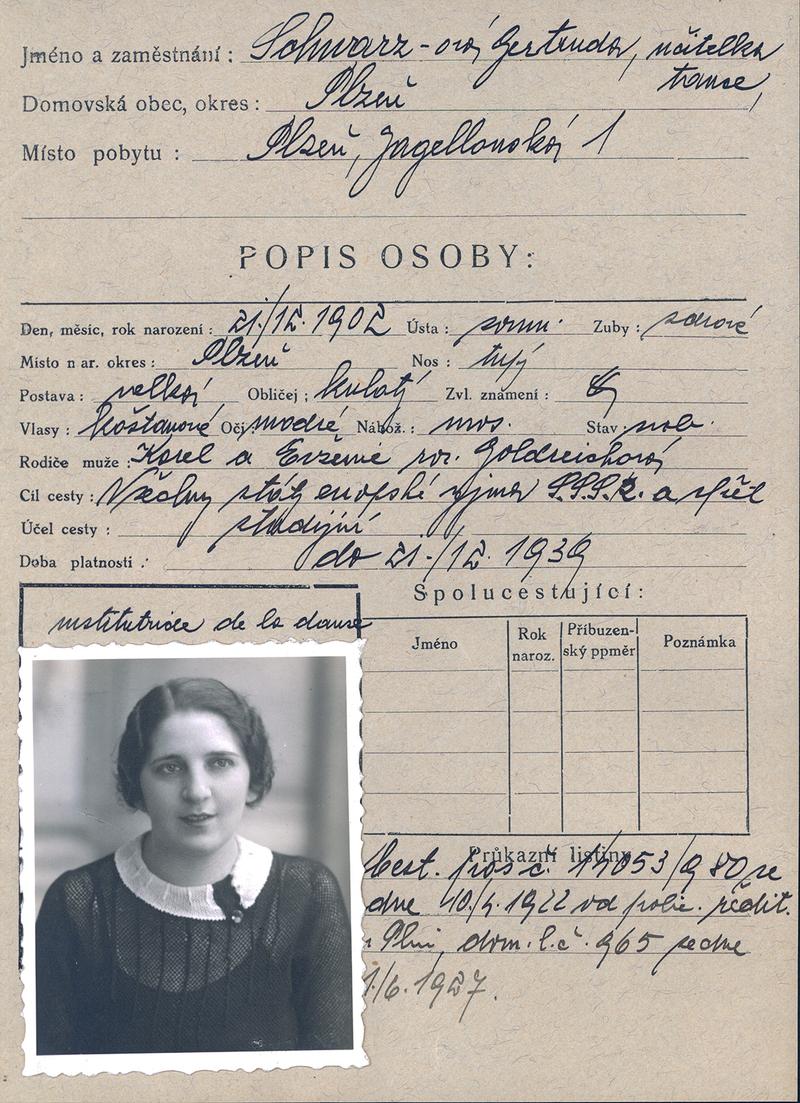 Jméno a zaměstnání: Schwarz-ová Gertruda, učitelka
tance,
Domovská obec, okres: Plzeň
Místo pobytu: Plzeň, Jagellonská 1
POPIS OSOBY:
Den, měsíc, rok narození: 21./12. 1902 Ústa: soum. Zuby: zdravé
Místo nar. okres: Plzeň Nos: tupý
Postava: velká Obličej; kulatý Zvl. znamení:
Vlasy: kaštanové Oči: modré Nábož.: mos. Stav: svob.
Rodiče muže: Karel a Evženie roz. Goldreichová
Cíl cesty: Všechny státy evropské vyjma S.S.S.R. a zpět
Účel cesty: studijní
Doba platnosti: do 21./12. 1939
Spolucestující:
institutrice de la danse
Jméno Rok naroz. Příbuzenský ppměr Poznámka
Průkazní listiny
Cest. pas č. 14053/980 ze
dne 10./4. 1922 od polic. ředit.
Plzni, dom. l. č. 965 ze dne
1/6. 1927.